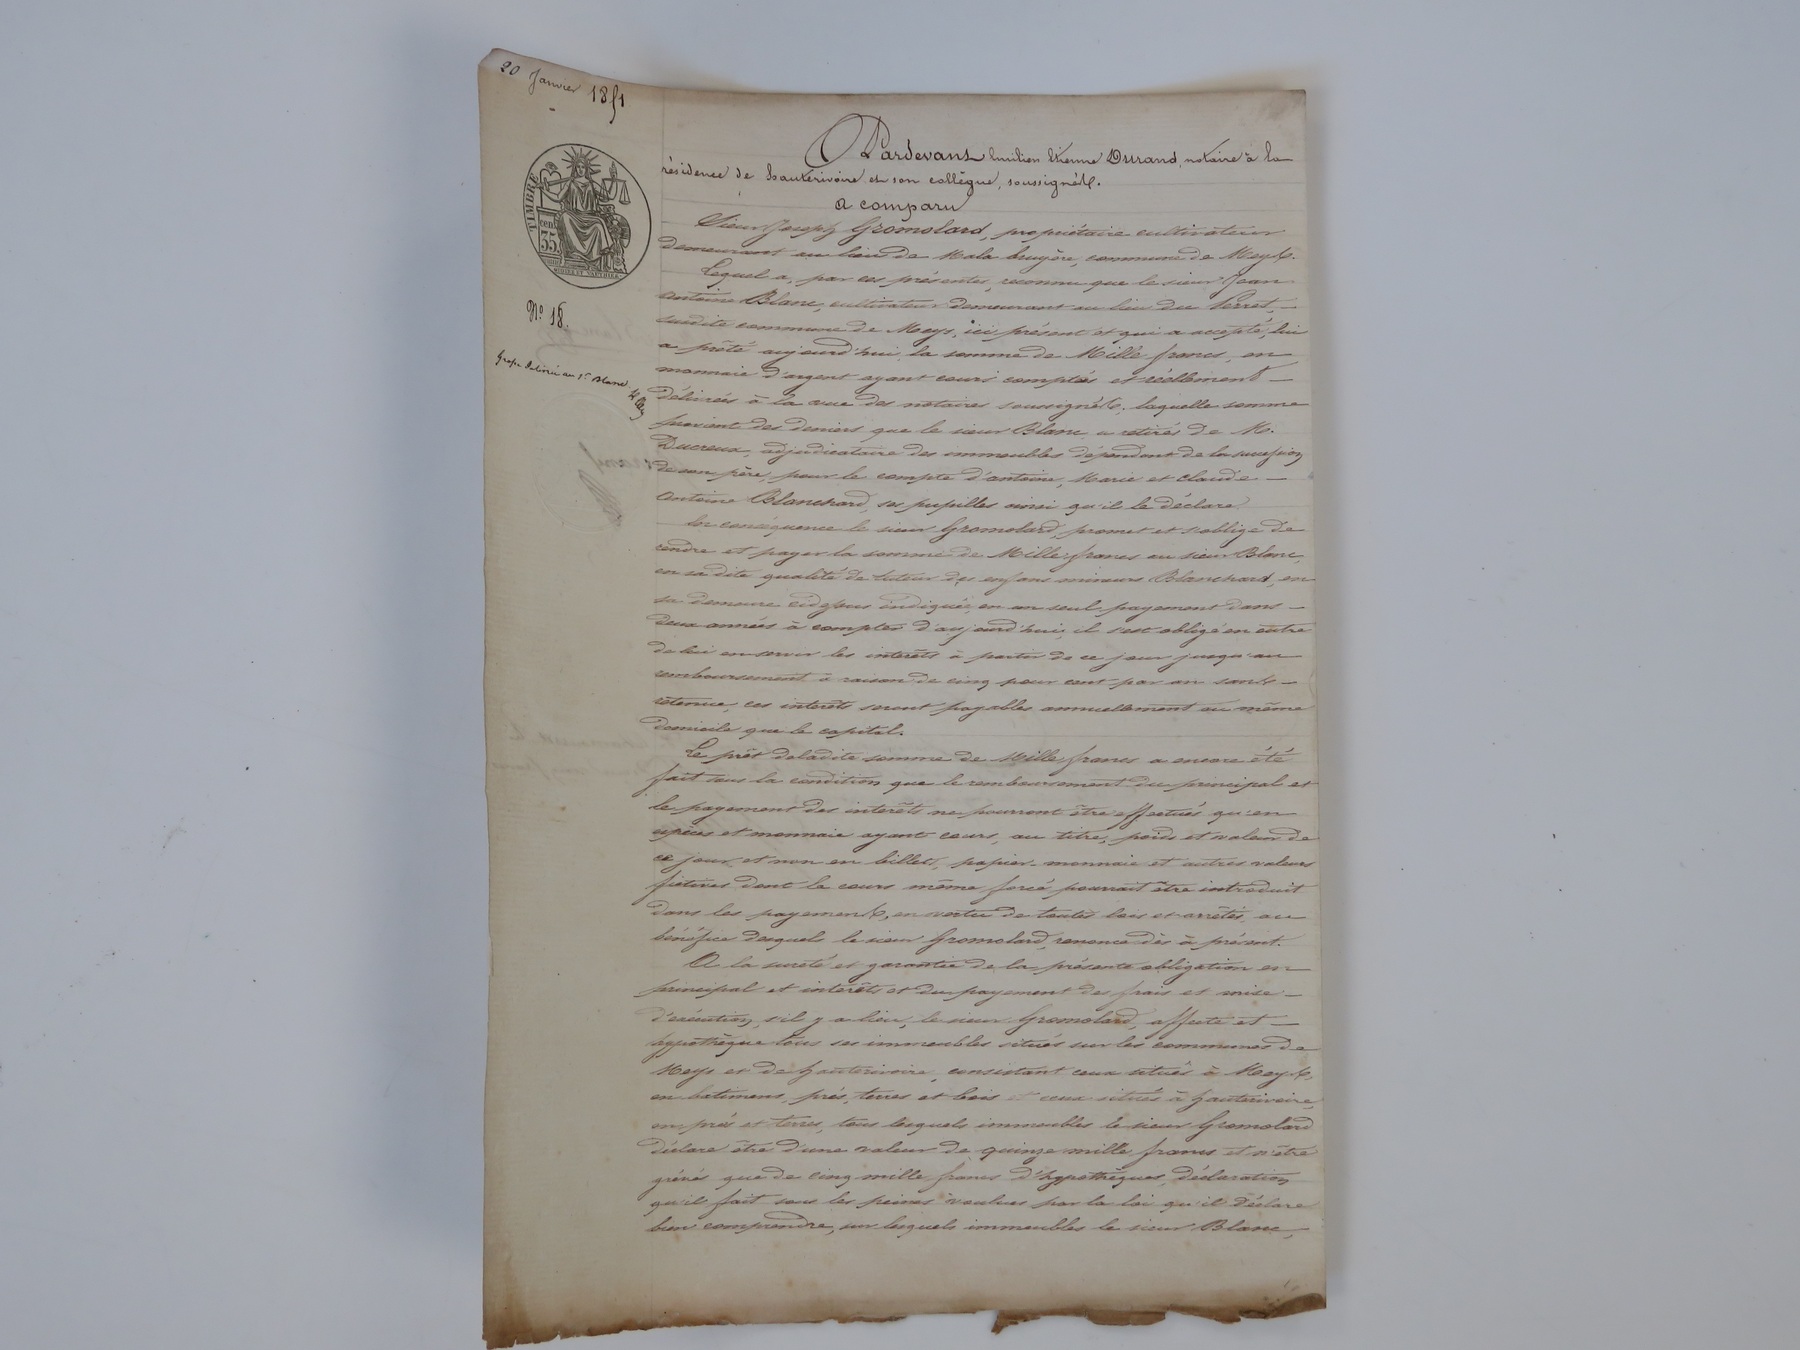 20 Janvier 1851
TIMBRE
cen
35
No 18.
Grosse délivrée au Sr Blanc
Pardevant Emilien Etienne Durand, notaire à la
résidence de hauterivoire et son collègue, soussignés.
a comparu
Sieur Joseph Gromolard, propriétaire cultivateur
demeurant au lieu de Mala bruyère, commune de Meys.
Lequel a, par ces présentes, reconnu que le sieur Jean
antoine Blanc, cultivateur demeurant au lieu du Perret, —
susdite commune de Meys, ici présent et qui a accepté, lui
a prêté aujourd'hui, la somme de Mille francs, en
monnaie d'argent ayant cours comptés et réellement —
délivrés à la vue des notaires soussignés. laquelle somme
provient des deniers que le sieur Blanc a retirés de M.
Ducreux, adjudicataire des immeubles dépendant de la succession
de son père, pour le compte d'antoine, Marie et Claude —
antoine Blanchard, ses pupilles ainsi qu'il le déclare.
En conséquence le sieur Gromolard, promet et s'oblige de
rendre et payer la somme de Mille francs au sieur Blanc,
en sa dite qualité de tuteur des enfans mineurs Blanchard, en
sa demeure cidessus indiquée, en un seul payement dans —
deux années à compter d'aujourd'hui, il s'est obligé en outre
de lui en servir les intérêts à partir de ce jour jusqu'au
remboursement à raison de cinq pour cent par an sans —
retenue, ces intérêts seront payables annuellement au même
domicile que le capital.
Le prêt deladite somme de Mille francs a encore été
fait sous la condition que le remboursement du principal et
le payement des intérêts ne pourront être effectués qu'en
espèces et monnaie ayant cours, au titre, poids et valeur de
ce jour, et non en billets, papier-monnaie et autres valeurs
fictives dont le cours même forcé pourrait être introduit
dans les payements, en vertu de toutes lois et arrêtés, au
bénéfice desquels le sieur Gromolard, renonce dès à présent.
A la sureté et garantie de la présente obligation en
principal et intérêts et du payement des frais et mise —
d'exécution, s'il y a lieu, le sieur Gromolard, affecte et —
hypothèque tous ses immeubles situés sur les communes de
Meys et de hauterivoire, consistant ceux situés à Meys,
en bâtimens, prés, terres et bois et ceux situés à hauterivoire,
en prés et terres, tous lesquels immeubles le sieur Gromolard
déclare être d'une valeur de quinze mille francs et n'être
grévés que de cinq mille francs d'hypothèques, déclaration
qu'il fait sous les peines voulues par la loi qu'il déclare
bien comprendre, sur lesquels immeubles le sieur Blanc,